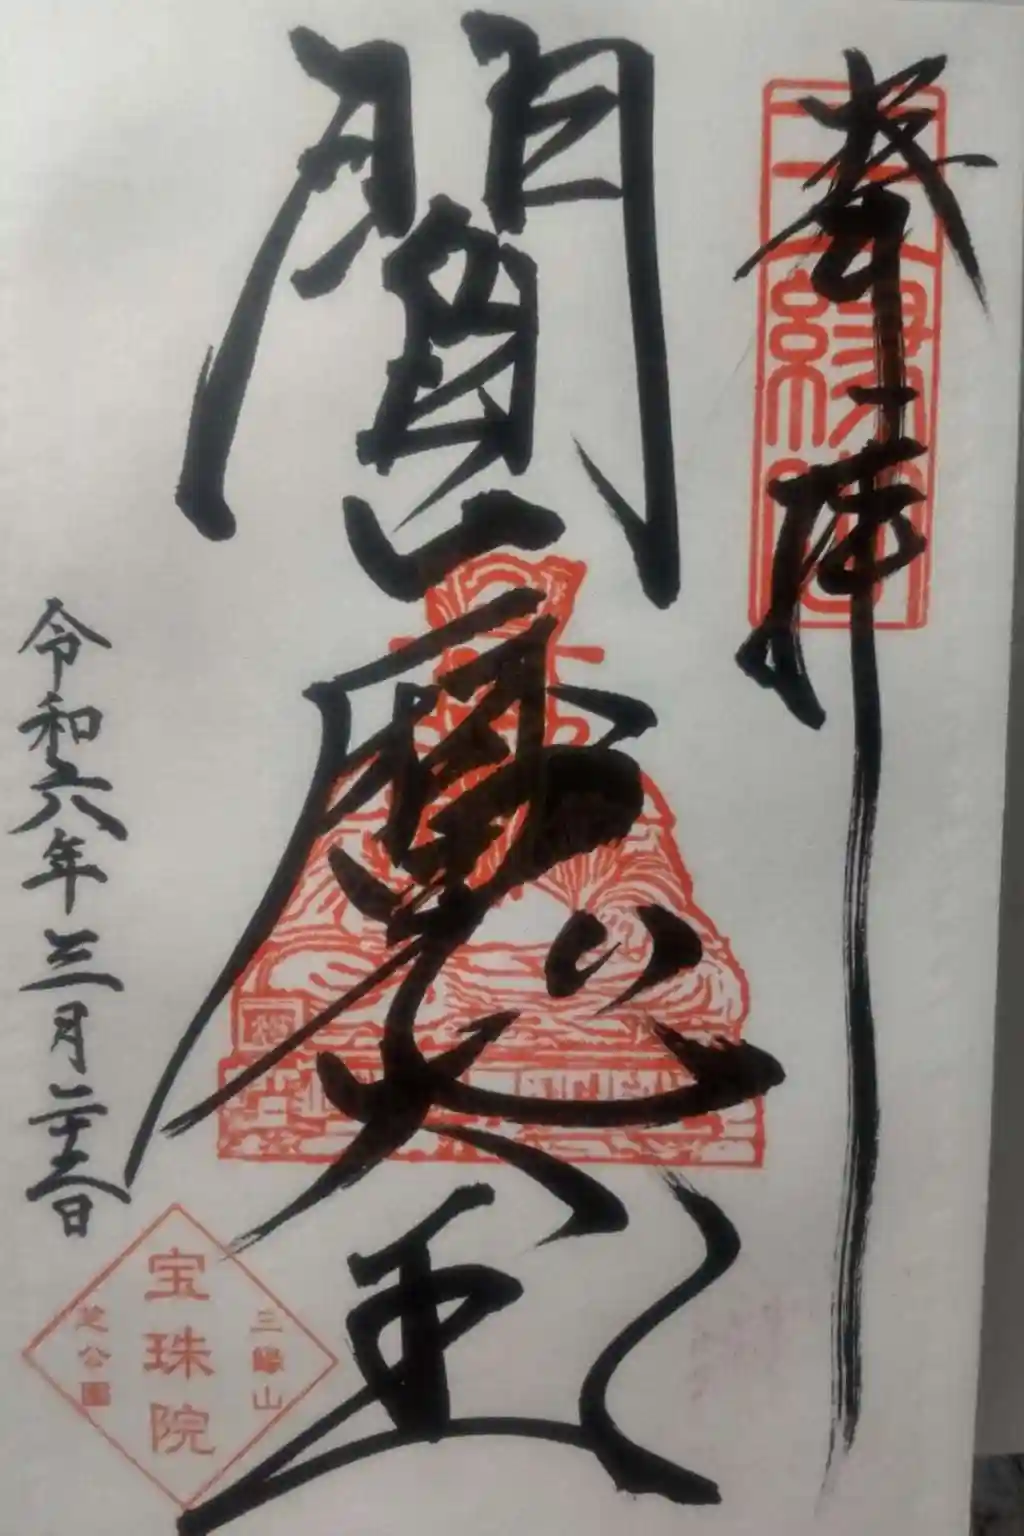 奉拝
三縁山
閻魔大王
令和六年三月二十三日
三縁山
宝珠院
芝公園